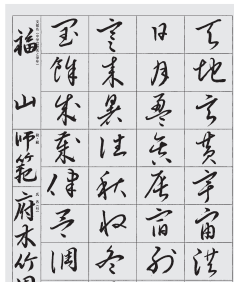 天地玄黃宇宙洪
日月盈昃辰宿列
寒来暑往秋收冬
閏餘成歲律呂調
福山師範府木竹